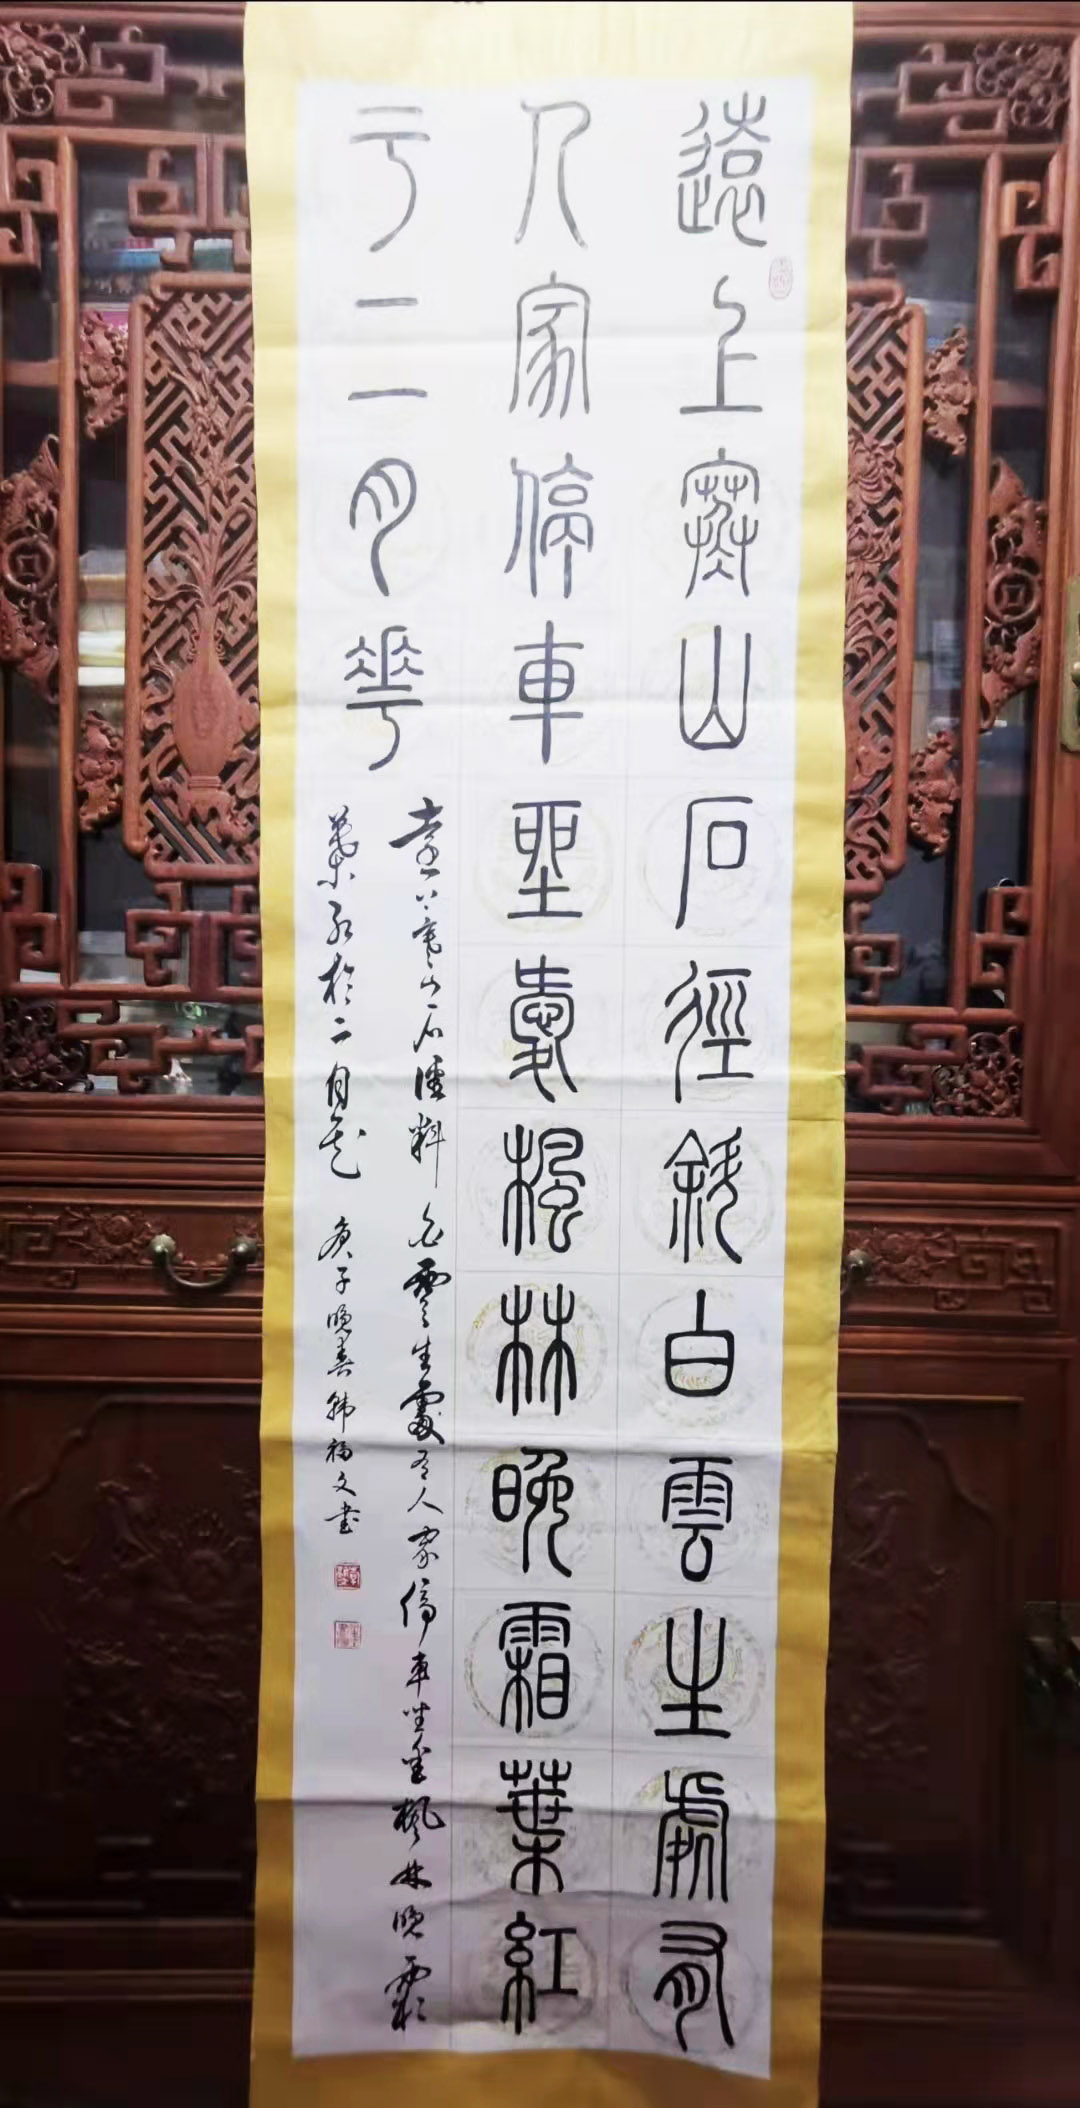 遠上寒山石徑斜白雲生處有
人家停車坐愛楓林晚霜葉紅
于二月花
遠上寒山石徑斜白雲生處有人家停車坐愛楓林晚霜
葉紅於二月花 庚子晚春韩福文书